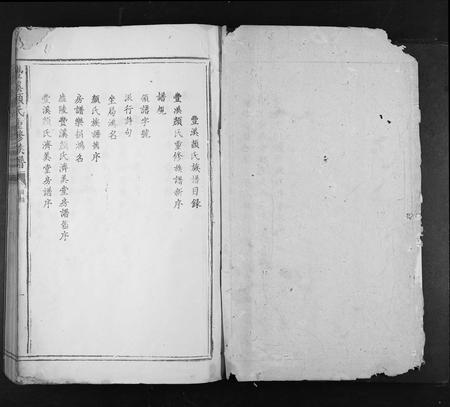 豐溪顏氏族譜目錄
豐溪顏氏重修族譜新序
譜規
領譜字號
派行詩句
坐局鴻名
顏氏族譜舊序
房譜樂捐鴻名
廬陵豐溪顏氏濟美堂房譜舊序
豐溪顏氏濟美堂房譜序
豐溪顏氏重修族譜